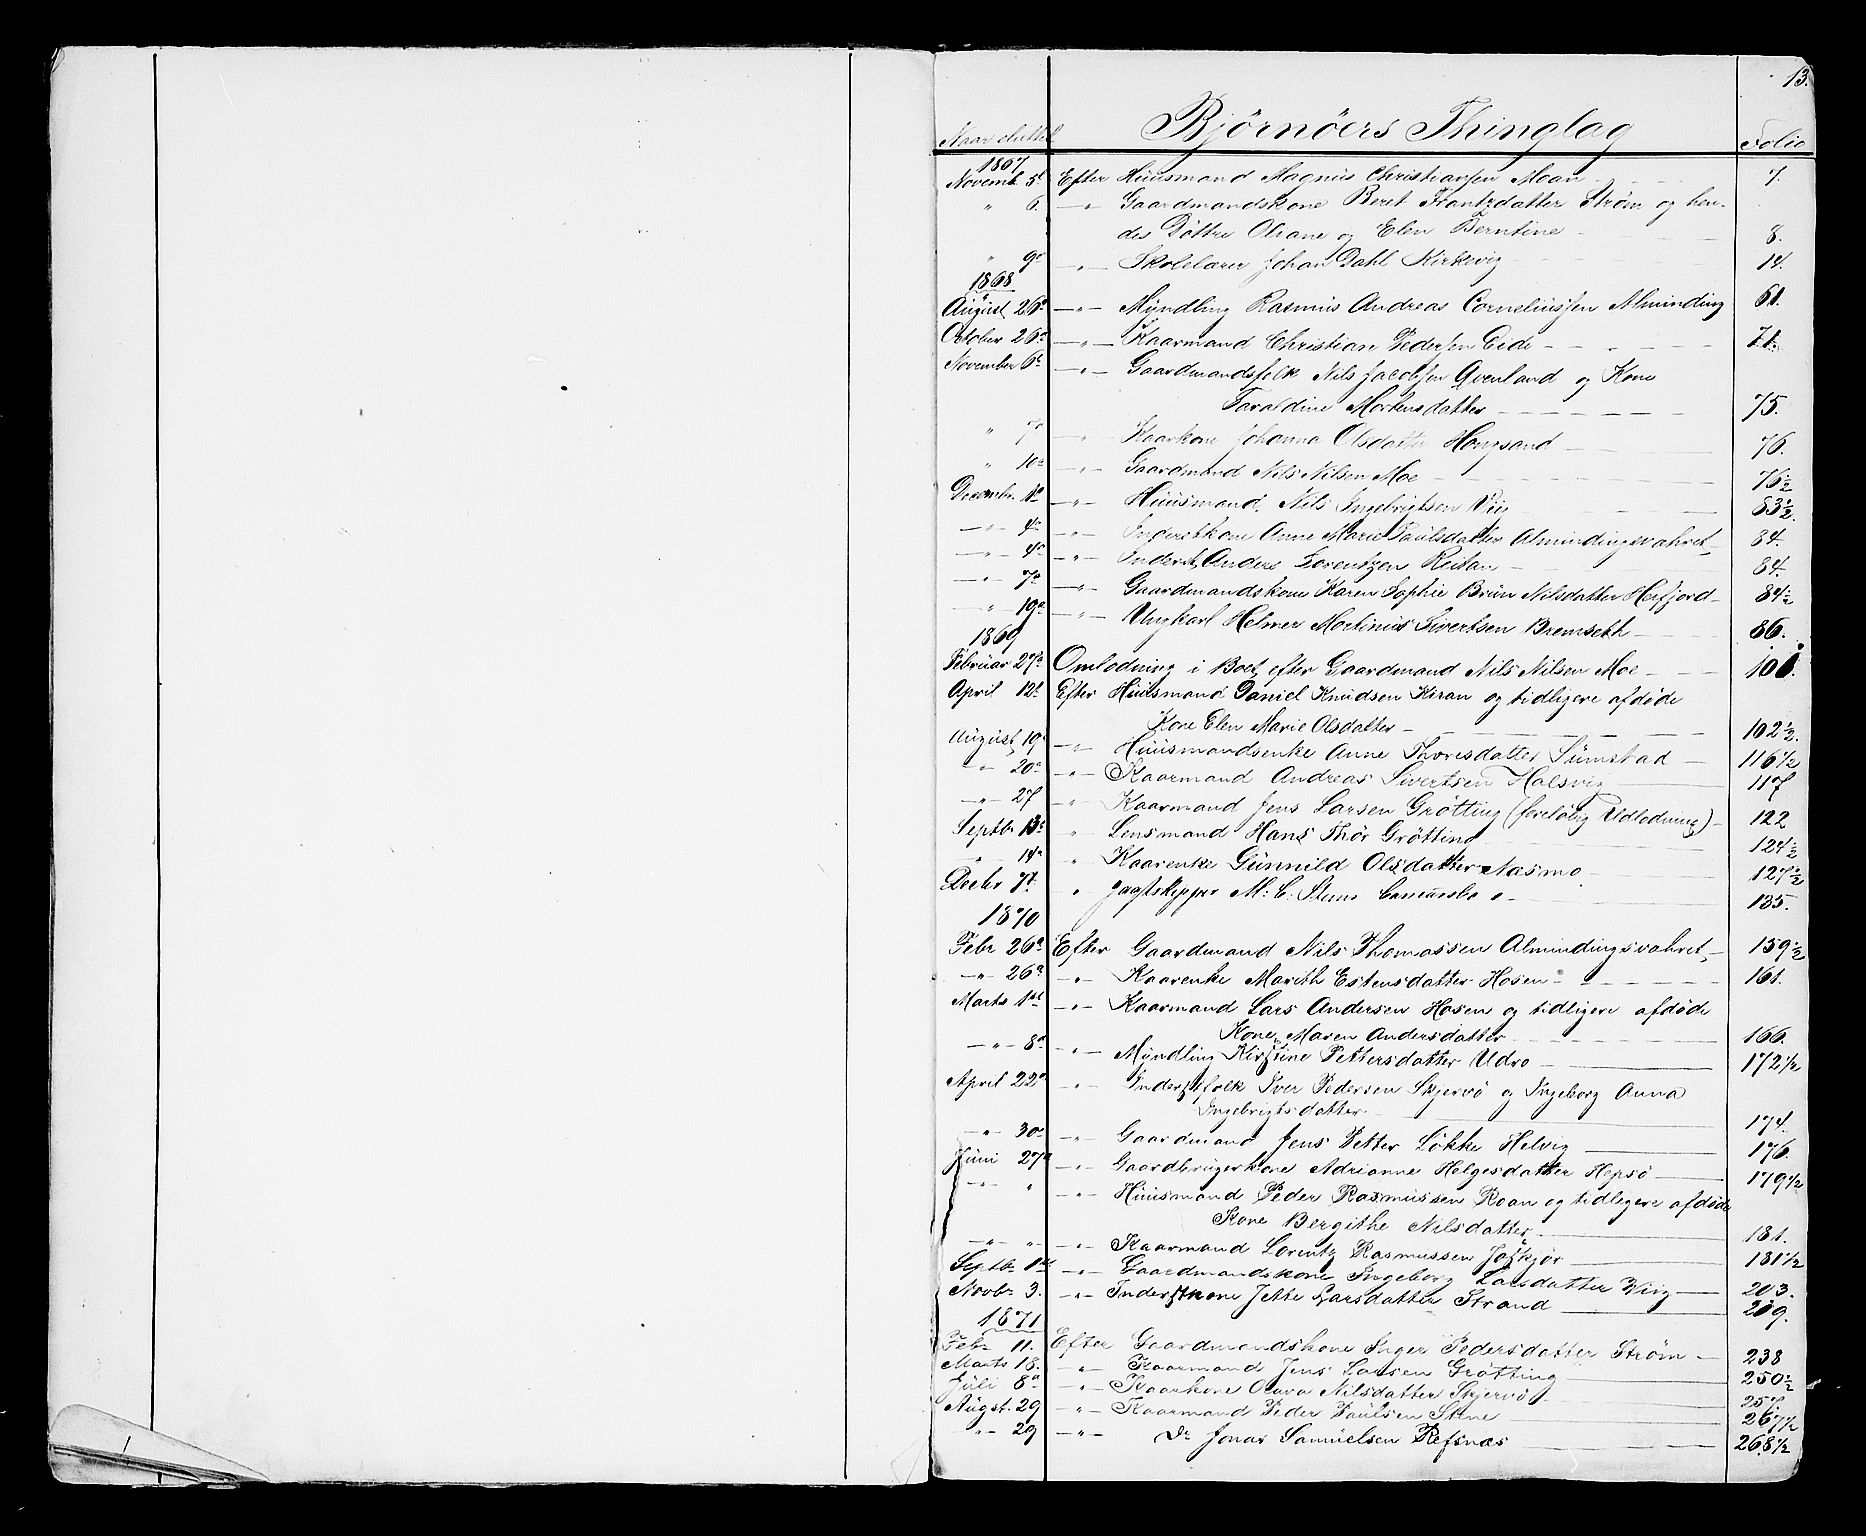 13.
Naar sluttet Bjørnøers Thinglag Folio
1867
Novemb. 5t Efter Huusmand Magnus Christiansen Moan 7.
" 6. -"- Gaardmandskone Beret Frantzdatter Strøm og hen-
des Døttre Oliane og Elen Berntine 8.
" 9de -"- Skolelærer Johan Dahl Kirkevig 14.
1868
August 26de -"- Myndling Rasmus Andreas Corneliussen Alminding 61.
October 26de -"- Kaarmand Christian Pedersen Eide 71.
November 6te -"- Gaardmandsfolk Nils Jacobsen Qvenland og Kone
Taraldine Mortensdatter 75.
" 7de -"- Kaarkone Johanna Olsdatter Hongsand 76.
" 10de -"- Gaardmand Nils Nilsen Moe 76½
Decembr. 1te -"- Huusmand Nils Ingebrigtsen Vii 83½.
-"- 4de -"- Inderstkone Anne Marie Paulsdatter Almindingsvahret 84.
-"- 4de -"- Inderst Anders Lorentzen Reitan 84.
-"- 7de -"- Gaardmandskone Karen Sophie Brün Nilsdatter Hofjord 84½
-"- 19de -"- Ungkarl Helmer Martinus Sivertsen Bremseth 86.
1869
Februar 27de Omlodning i Boet efter Gaardmand Nils Nilsen Moe 101.
April 12te Efter Huusmand Daniel Knudsen Kiran og tidligere afdøde
Kone Elen Marie Olsdatter 102½.
August 19de -"- Huusmandsenke Anne Thoresdatter Sumstad 116½
-"- 20de -"- Kaarmand Andreas Sivertsen Halsvig 117
-"- 27 -"- Kaarmand Jens Larsen Grøtting (foreløbig Udlodning) 122
Septbr 13de " Lensmand Hans Thør Grøtting 124½
-"- 14de " Kaarenke Gunnild Olsdatter Næsmo 127½
Decbr 7de " Jagtskipper M: C: Stenn 135.
1870
Febr 26de Efter Gaardmand Nils Thomassen Almindingsvahret 159½
-"- 26de -"- Kaarenke Marith Estensdatter Hosen 161.
Marts 1ste -"- Kaarmand Lars Andersen Hosen og tidligere afdøde
Kone Maren Andersdatter 166.
-"- 8de -"- Myndling Kirstine Pettersdatter Udro 172½
April 22de -"- Inderstfolk Iver Pedersen Skjervø og Ingeborg Anna
Ingebrigtsdatter 174.
-"- 30de -"- Gaardmand Jens Petter Løkke Helvig 176.
Juni 27de -"- Gaardbrugerkone Adrianne Helgesdatter Hepsø 179½
-"- " -"- Huusmand Peder Rasmussen Roan og tidligere afdøde
Kone Bergithe Nilsdatter 181.
-"- " -"- Kaarmand Lorentz Rasmussen Jøskjør 181½
Septbr 1ste -"- Gaardmandskone Ingeborg Larsdatter Viig 203.
Novbr 3. -"- Inderstkone Jette Larsdatter Strand 209.
1871
Febr 11. Efter Gaardmandskone Inger Pedersdatter Strøm 238
Marts 18. -"- Kaarmand Jens Larsen Grøtting 250½
Juli 8de -"- Kaarkone Olava Nilsdatter Skjervø 257.
Augst. 29 -"- Kaarmand Peder Paulsen Stene 267½
-"- 29 -"- Do Jonas Samuelsen Refsnæs 268½